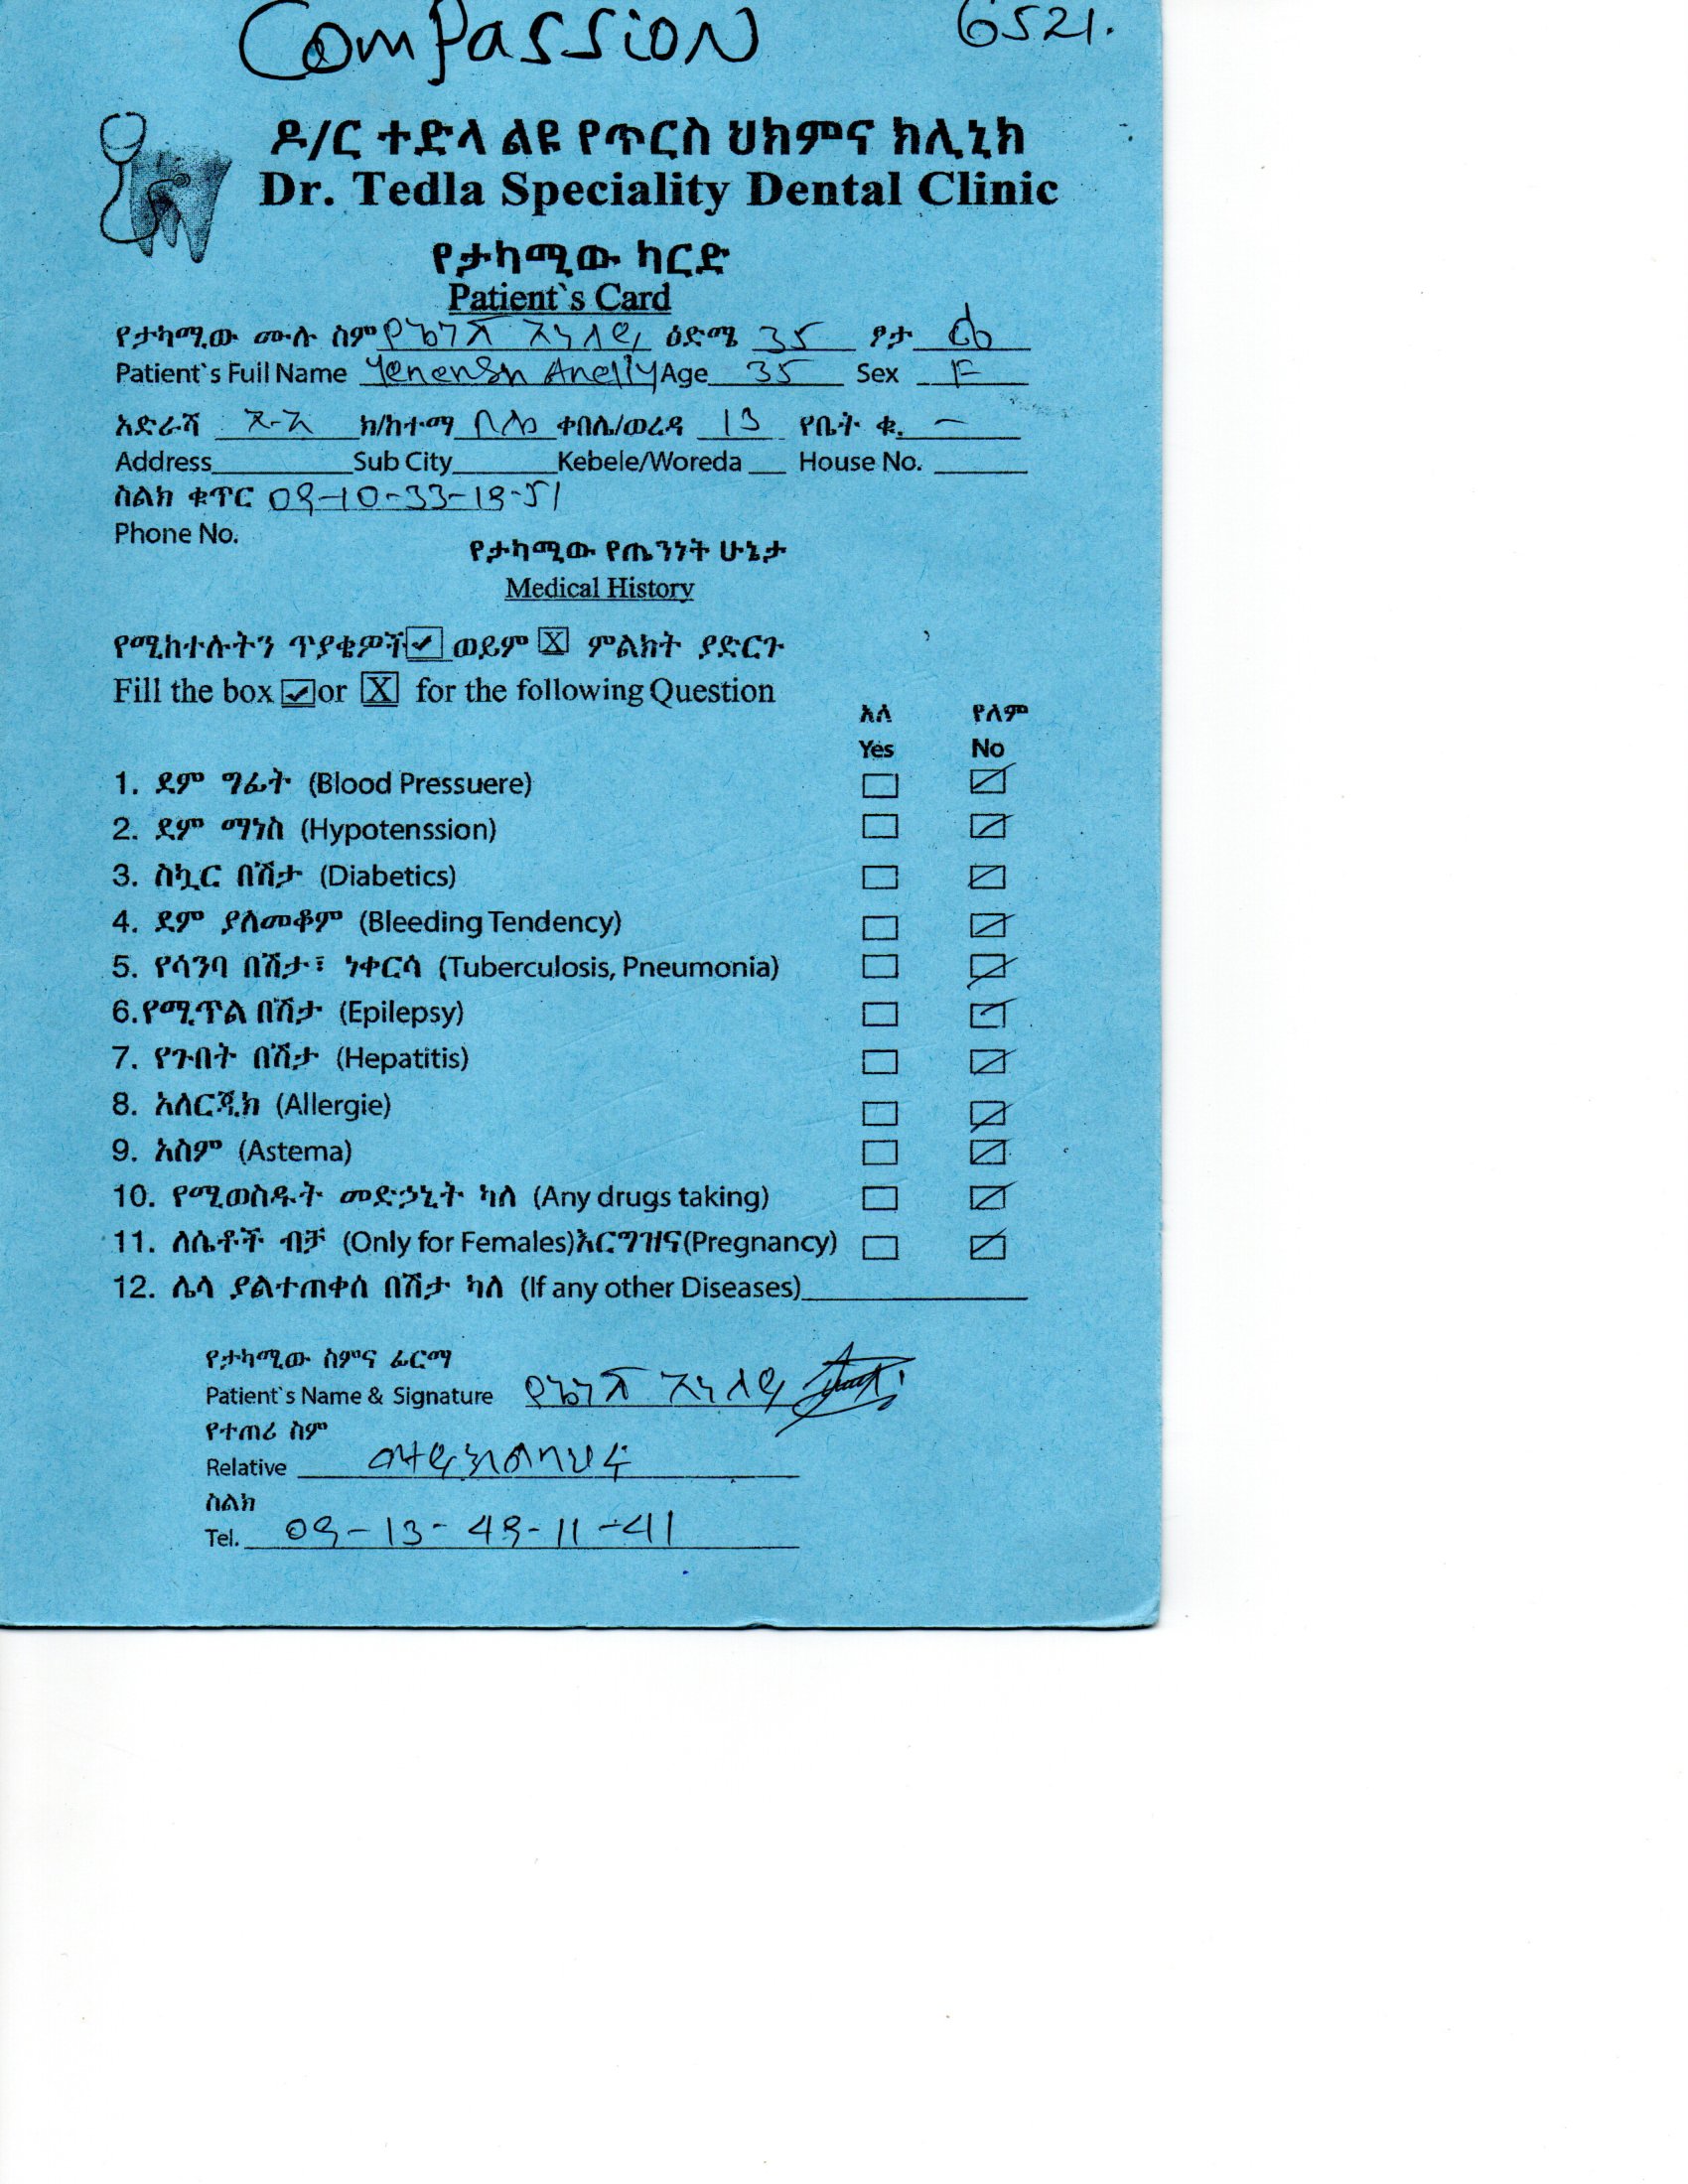 Compassion 6521.
ዶ/ር ተድላ ልዩ የጥርስ ህክምና ክሊኒክ
Dr. Tedla Speciality Dental Clinic
የታካሚው ካርድ
Patient`s Card
የታካሚው ሙሉ ስም የኔነሽ አነለይ ዕድሜ 35 ፆታ ሴ
Patient`s Full Name Yenensh Anelly Age 35 Sex F
አድራሻ አ-አ ክ/ከተማ ቦሌ ቀበሌ/ወረዳ 13 የቤት ቁ. –
Address Sub City Kebele/Woreda House No.
ስልክ ቁጥር 09-10-33-18-51
Phone No.
የታካሚው የጤንነት ሁኔታ
Medical History
የሚከተሉትን ጥያቄዎች ✓ ወይም X ምልክት ያድርጉ
Fill the box ✓ or X for the following Question
አለ የለም
Yes No
1. ደም ግፊት (Blood Pressuere)
2. ደም ማነስ (Hypotenssion)
3. ስኳር በሽታ (Diabetics)
4. ደም ያለመቆም (Bleeding Tendency)
5. የሳንባ በሽታ፣ ነቀርሳ (Tuberculosis, Pneumonia)
6. የሚጥል በሽታ (Epilepsy)
7. የጉበት በሽታ (Hepatitis)
8. አለርጂክ (Allergie)
9. አስም (Astema)
10. የሚወስዱት መድኃኒት ካለ (Any drugs taking)
11. ለሴቶች ብቻ (Only for Females)እርግዝና(Pregnancy)
12. ሌላ ያልተጠቀሰ በሽታ ካለ (If any other Diseases)
የታካሚው ስምና ፊርማ
Patient`s Name & Signature የኔነሽ አነለይ
የተጠሪ ስም
Relative
ስልክ
Tel. 09-13-49-11-41